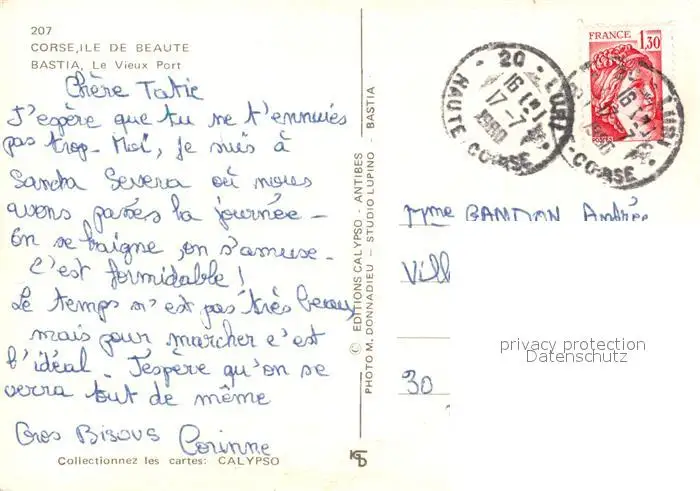 207
CORSE, ILE DE BEAUTE
BASTIA, Le Vieux Port
Chère Tatie
J'espère que tu ne t'ennuies
pas trop. Moi, je suis à
Santa Severa où nous
avons passés la journée -
On se baigne, on s'amuse.
C'est formidable !
Le temps n'est pas très beau,
mais pour marcher c'est
l'idéal. J'espère qu'on se
verra tout de même
Gros Bisous Corinne
Collectionnez les cartes: CALYPSO
© EDITIONS CALYPSO - ANTIBES
PHOTO M. DONNADIEU - STUDIO LUPINO - BASTIA
KGD
FRANCE
1,30
20 - LURI
16 H
17-7
1980
HAUTE-CORSE
20 - LURI
16 H
1980
HAUTE-CORSE
Mme BANTMAN Andrée
Vill
30
privacy protection
Datenschutz